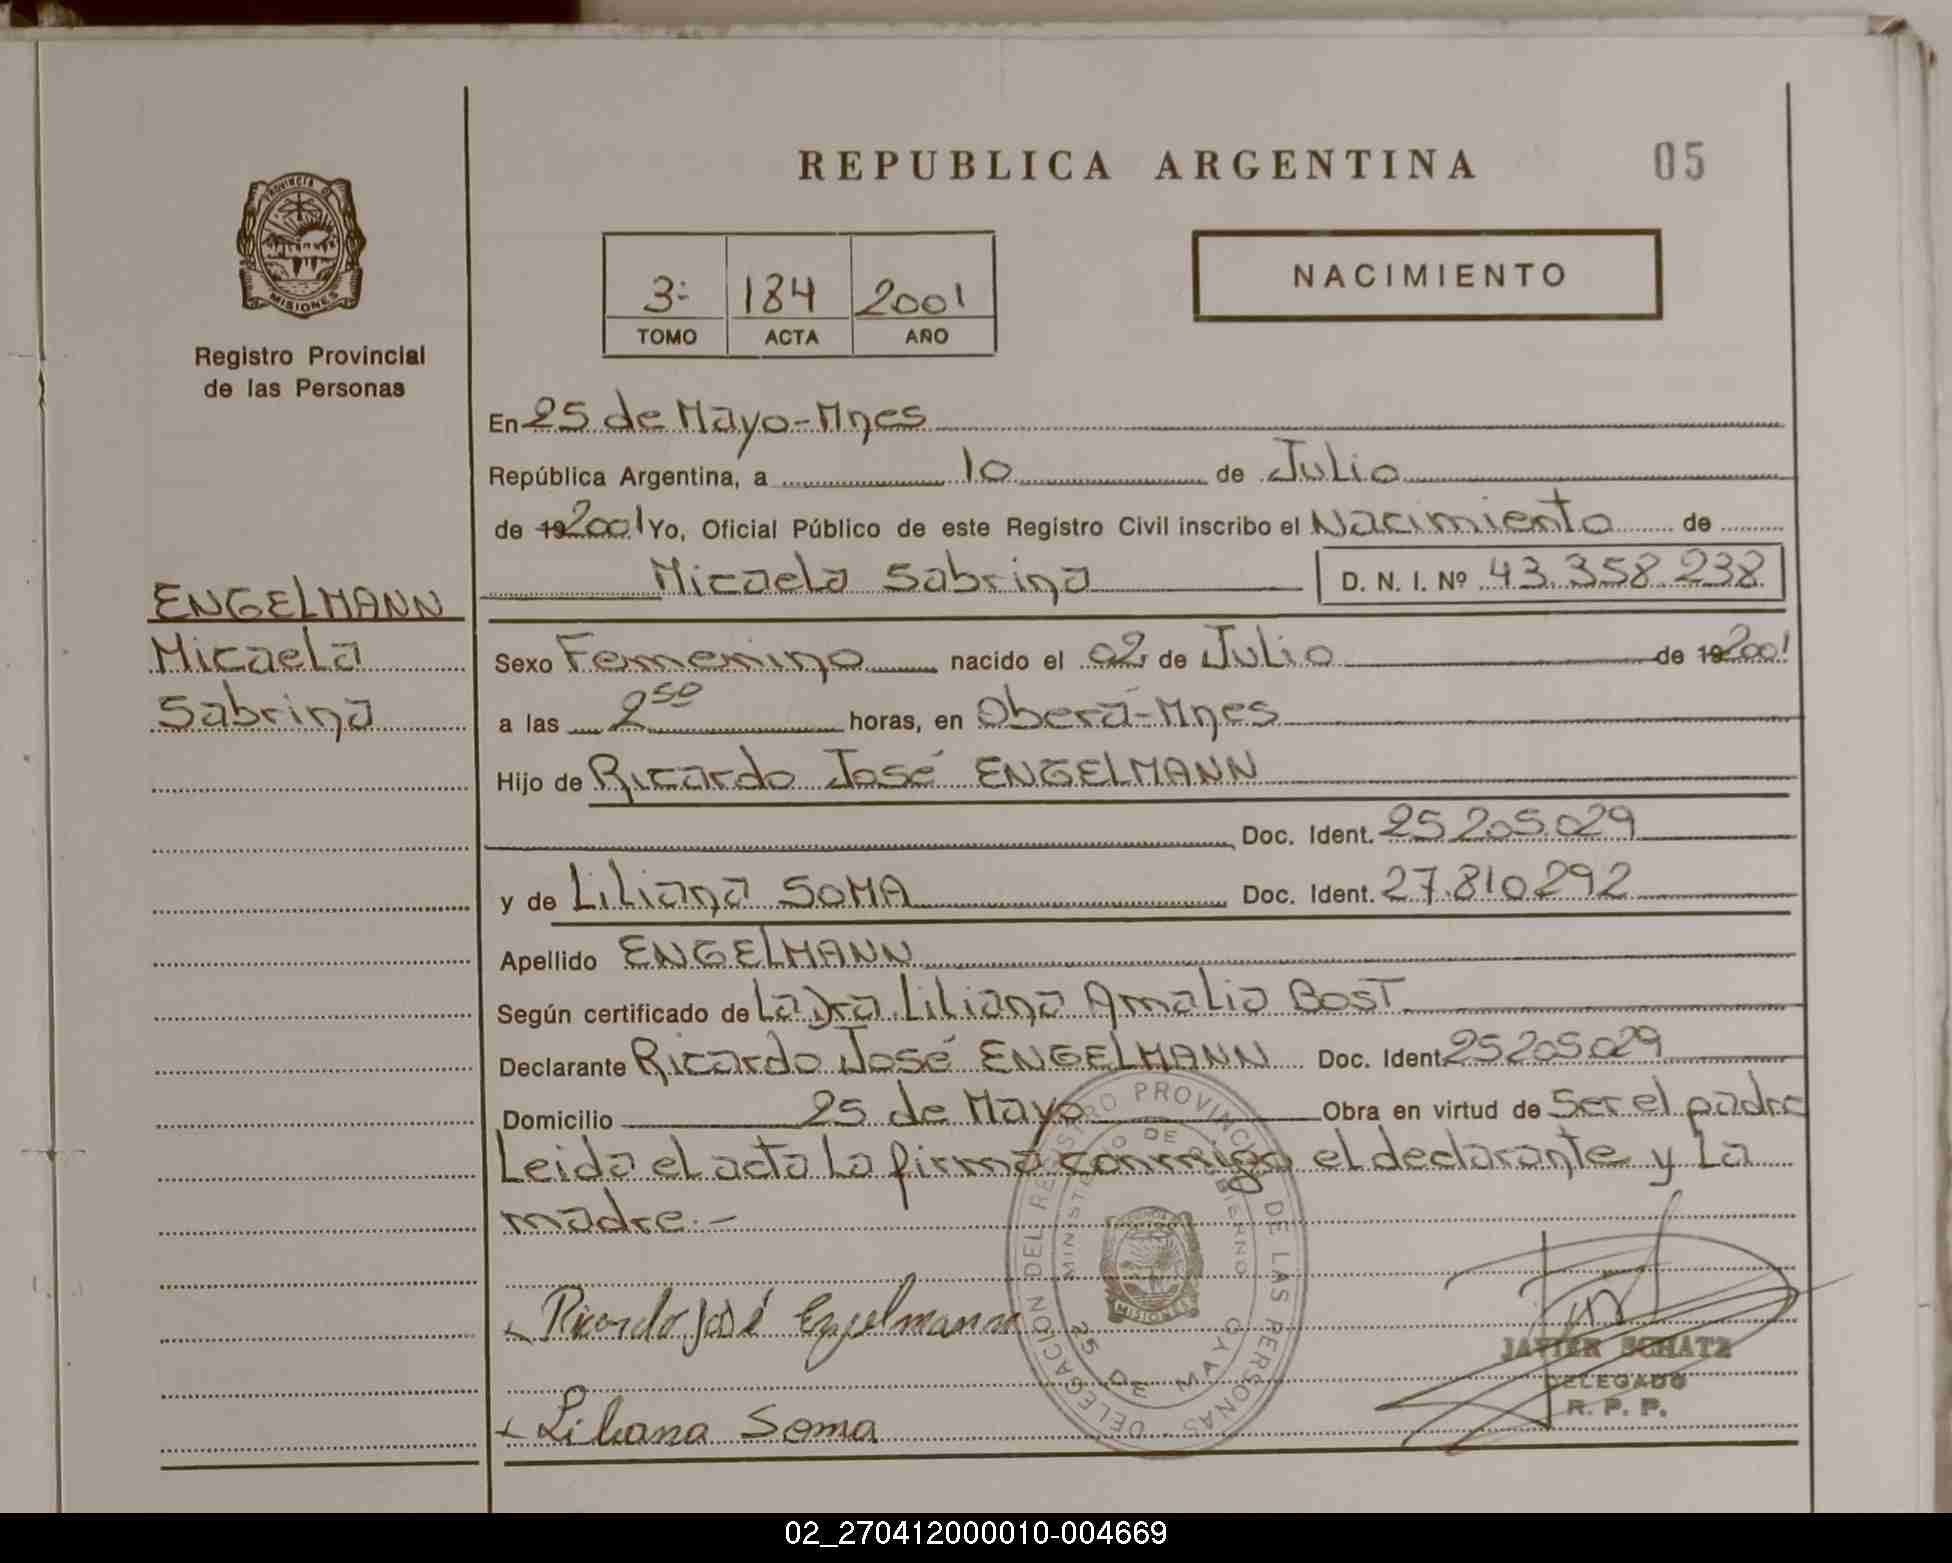 REPUBLICA ARGENTINA
05
PROVINCIA DE
MISIONES
Registro Provincial
de las Personas
3=
184
2001
TOMO
ACTA
AÑO
NACIMIENTO
En 25 de Mayo-Mnes
República Argentina, a 10 de Julio
de 19 2001 Yo, Oficial Público de este Registro Civil inscribo el Nacimiento de
Micaela Sabrina D. N. I. Nº 43.358.238
ENGELMANN
Micaela
Sabrina
Sexo Femenino nacido el 02 de Julio de 19 2001
a las 2 50 horas, en Oberá-Mnes
Hijo de Ricardo José ENGELMANN
Doc. Ident. 25205029
y de Liliana SOMA Doc. Ident. 27.810292
Apellido ENGELMANN
Según certificado de La Dra. Liliana Amalia BOST
Declarante Ricardo José ENGELMANN Doc. Ident. 25205029
Domicilio 25 de Mayo Obra en virtud de Ser el padre
Leida el acta la firma conmigo el declarante y la
madre.-
Ricardo José Engelmann
Liliana Soma
DELEGACION DEL REGISTRO PROVINCIAL DE LAS PERSONAS
MINISTERIO DE GOBIERNO
MISIONES
25 DE MAYO
JAVIER SCHATZ
DELEGADO
R. P. P.
02_270412000010-004669